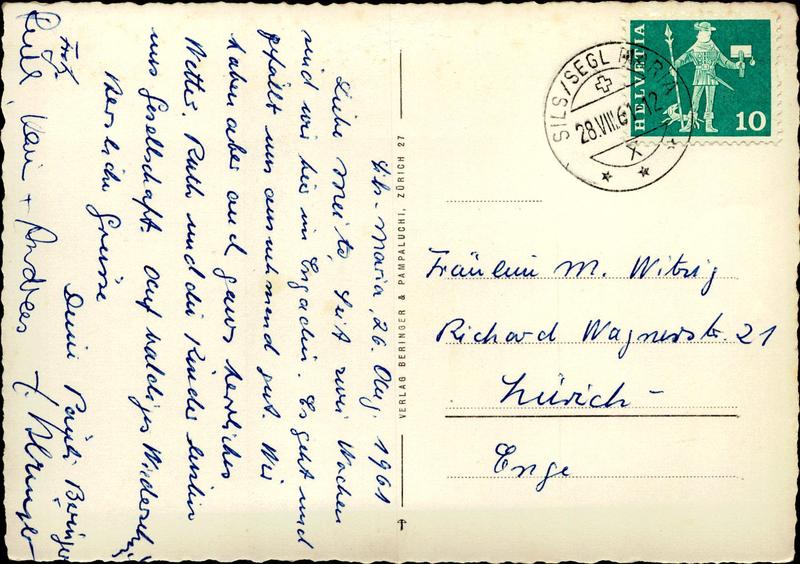 Sils-Maria, 26. Aug. 1961
Liebe Meite, Seit zwei Wochen
sind wir hier im Engadin. Es geht und
gefällt uns ausnehmend gut. Wir
haben aber auch ganz herrliches
Wetter. Ruth und die Kinder leisten
uns Gesellschaft. Auf baldiges Wiedersehn
Herzliche Grüsse
Deine Päuli Beringer
Ruth, Kari + Andres
VERLAG BERINGER & PAMPALUCHI, ZÜRICH 27
SILS/SEGL MARIA
28.VIII.61-12
X
HELVETIA
10
Fräulein M. Witzig
Richard Wagnerstr. 21
Zürich-
Enge